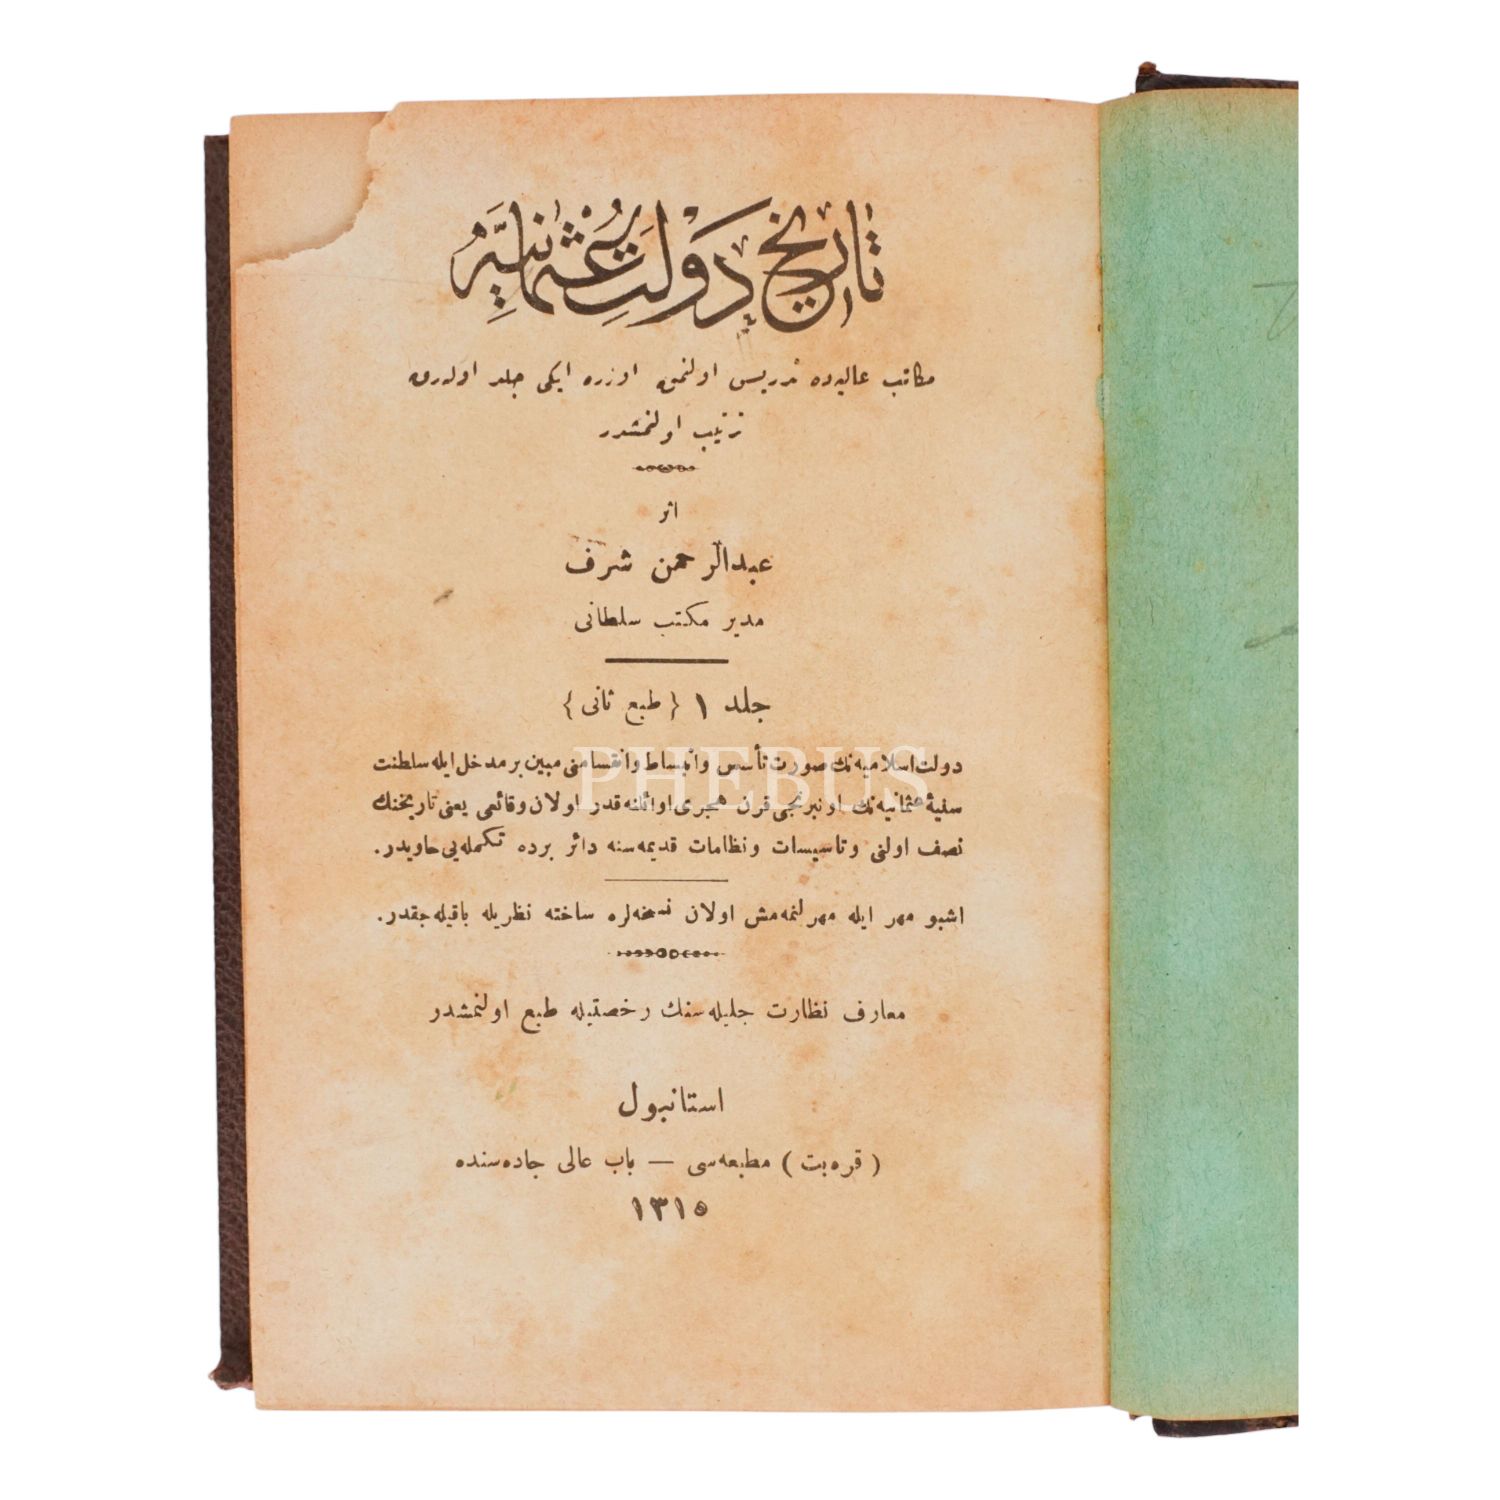 تاريخ دولت عثمانيه
مكاتب عاليه‌ده تدريس اولنمق اوزره ايكى جلد اوله‌رق
ترتيب اولنمشدر
اثر
عبدالرحمن شرف
مدير مكتب سلطانى
جلد ١ { طبع ثانى }
دولت اسلاميه‌نك صورت تأسس وانبساط وانقسامنى مبين بر مدخل ايله سلطنت
سنيۀ عثمانيه‌نك اون برنجى قرن هجرى اوائلنه قدر اولان وقائعى يعنى تاريخنك
نصف اولنى وتاسيسات ونظامات قديمه‌سنه دائر برده تكمله‌يى حاويدر.
اشبو مهر ايله مهرلنمه‌مش اولان نسخه‌لره ساخته نظريله باقيله‌جقدر.
معارف نظارت جليله‌سنك رخصتيله طبع اولنمشدر
استانبول
( قره‌بت ) مطبعه‌سى — باب عالى جاده‌سنده
١٣١٥
PHEBUS